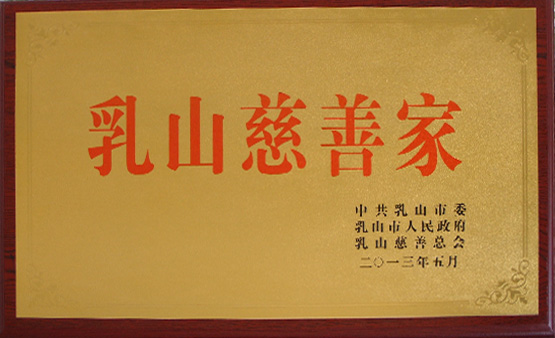 乳山慈善家
中共乳山市委
乳山市人民政府
乳山慈善总会
二〇一三年五月